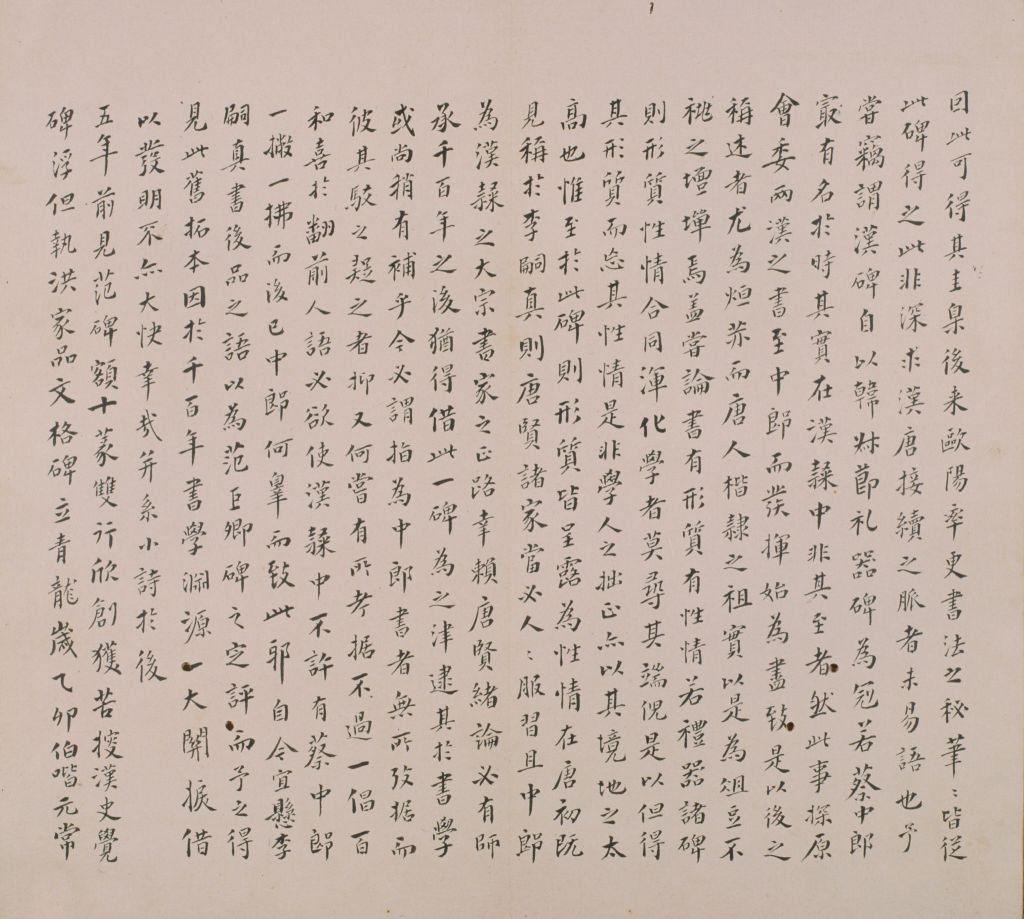 因此可得其圭臬後来歐陽率更書法之秘筆〻皆從
此碑得之此非深求漢唐接續之脈者未易語也予
嘗竊謂漢碑自以韓勑節礼器碑為冠若蔡中郎
冣有名於時其實在漢隸中非其至者然此事探原
會委兩漢之書至中郎而發揮始為盡致是以後之
稱述者尤為烜赤而唐人楷隸之祖實以是為俎豆不
祧之壇墠焉盖嘗論書有形質有性情若禮器諸碑
則形質性情合同渾化學者莫尋其端倪是以但得
其形質而忘其性情是非學人之拙正亦以其境地之太
高也惟至於此碑則形質皆呈露為性情在唐初既
見稱於李嗣真則唐賢諸家當必人〻服習且中郎
為漢隸之大宗書家之正路幸賴唐賢緒論必有師
承千百年之後猶得借此一碑為之津逮其於書學
或尚稍有補乎今必謂指為中郎書者無所攷据而
彼其駁之疑之者抑又何嘗有所考据不過一倡百
和喜於翻前人語必欲使漢隸中不許有蔡中郎
一撇一拂而後已中郎何辜而致此耶自今宜懸李
嗣真書後品之語以為范巨卿碑之定評而予之得
見此舊拓本因於千百年書學淵源一大關捩借
以發明不亦大快幸哉并系小詩於後
五年前見范碑額十篆雙行欣創獲苦搜漢史覺
碑浮但執洪家品文格碑立青龍歲乙卯伯喈元常